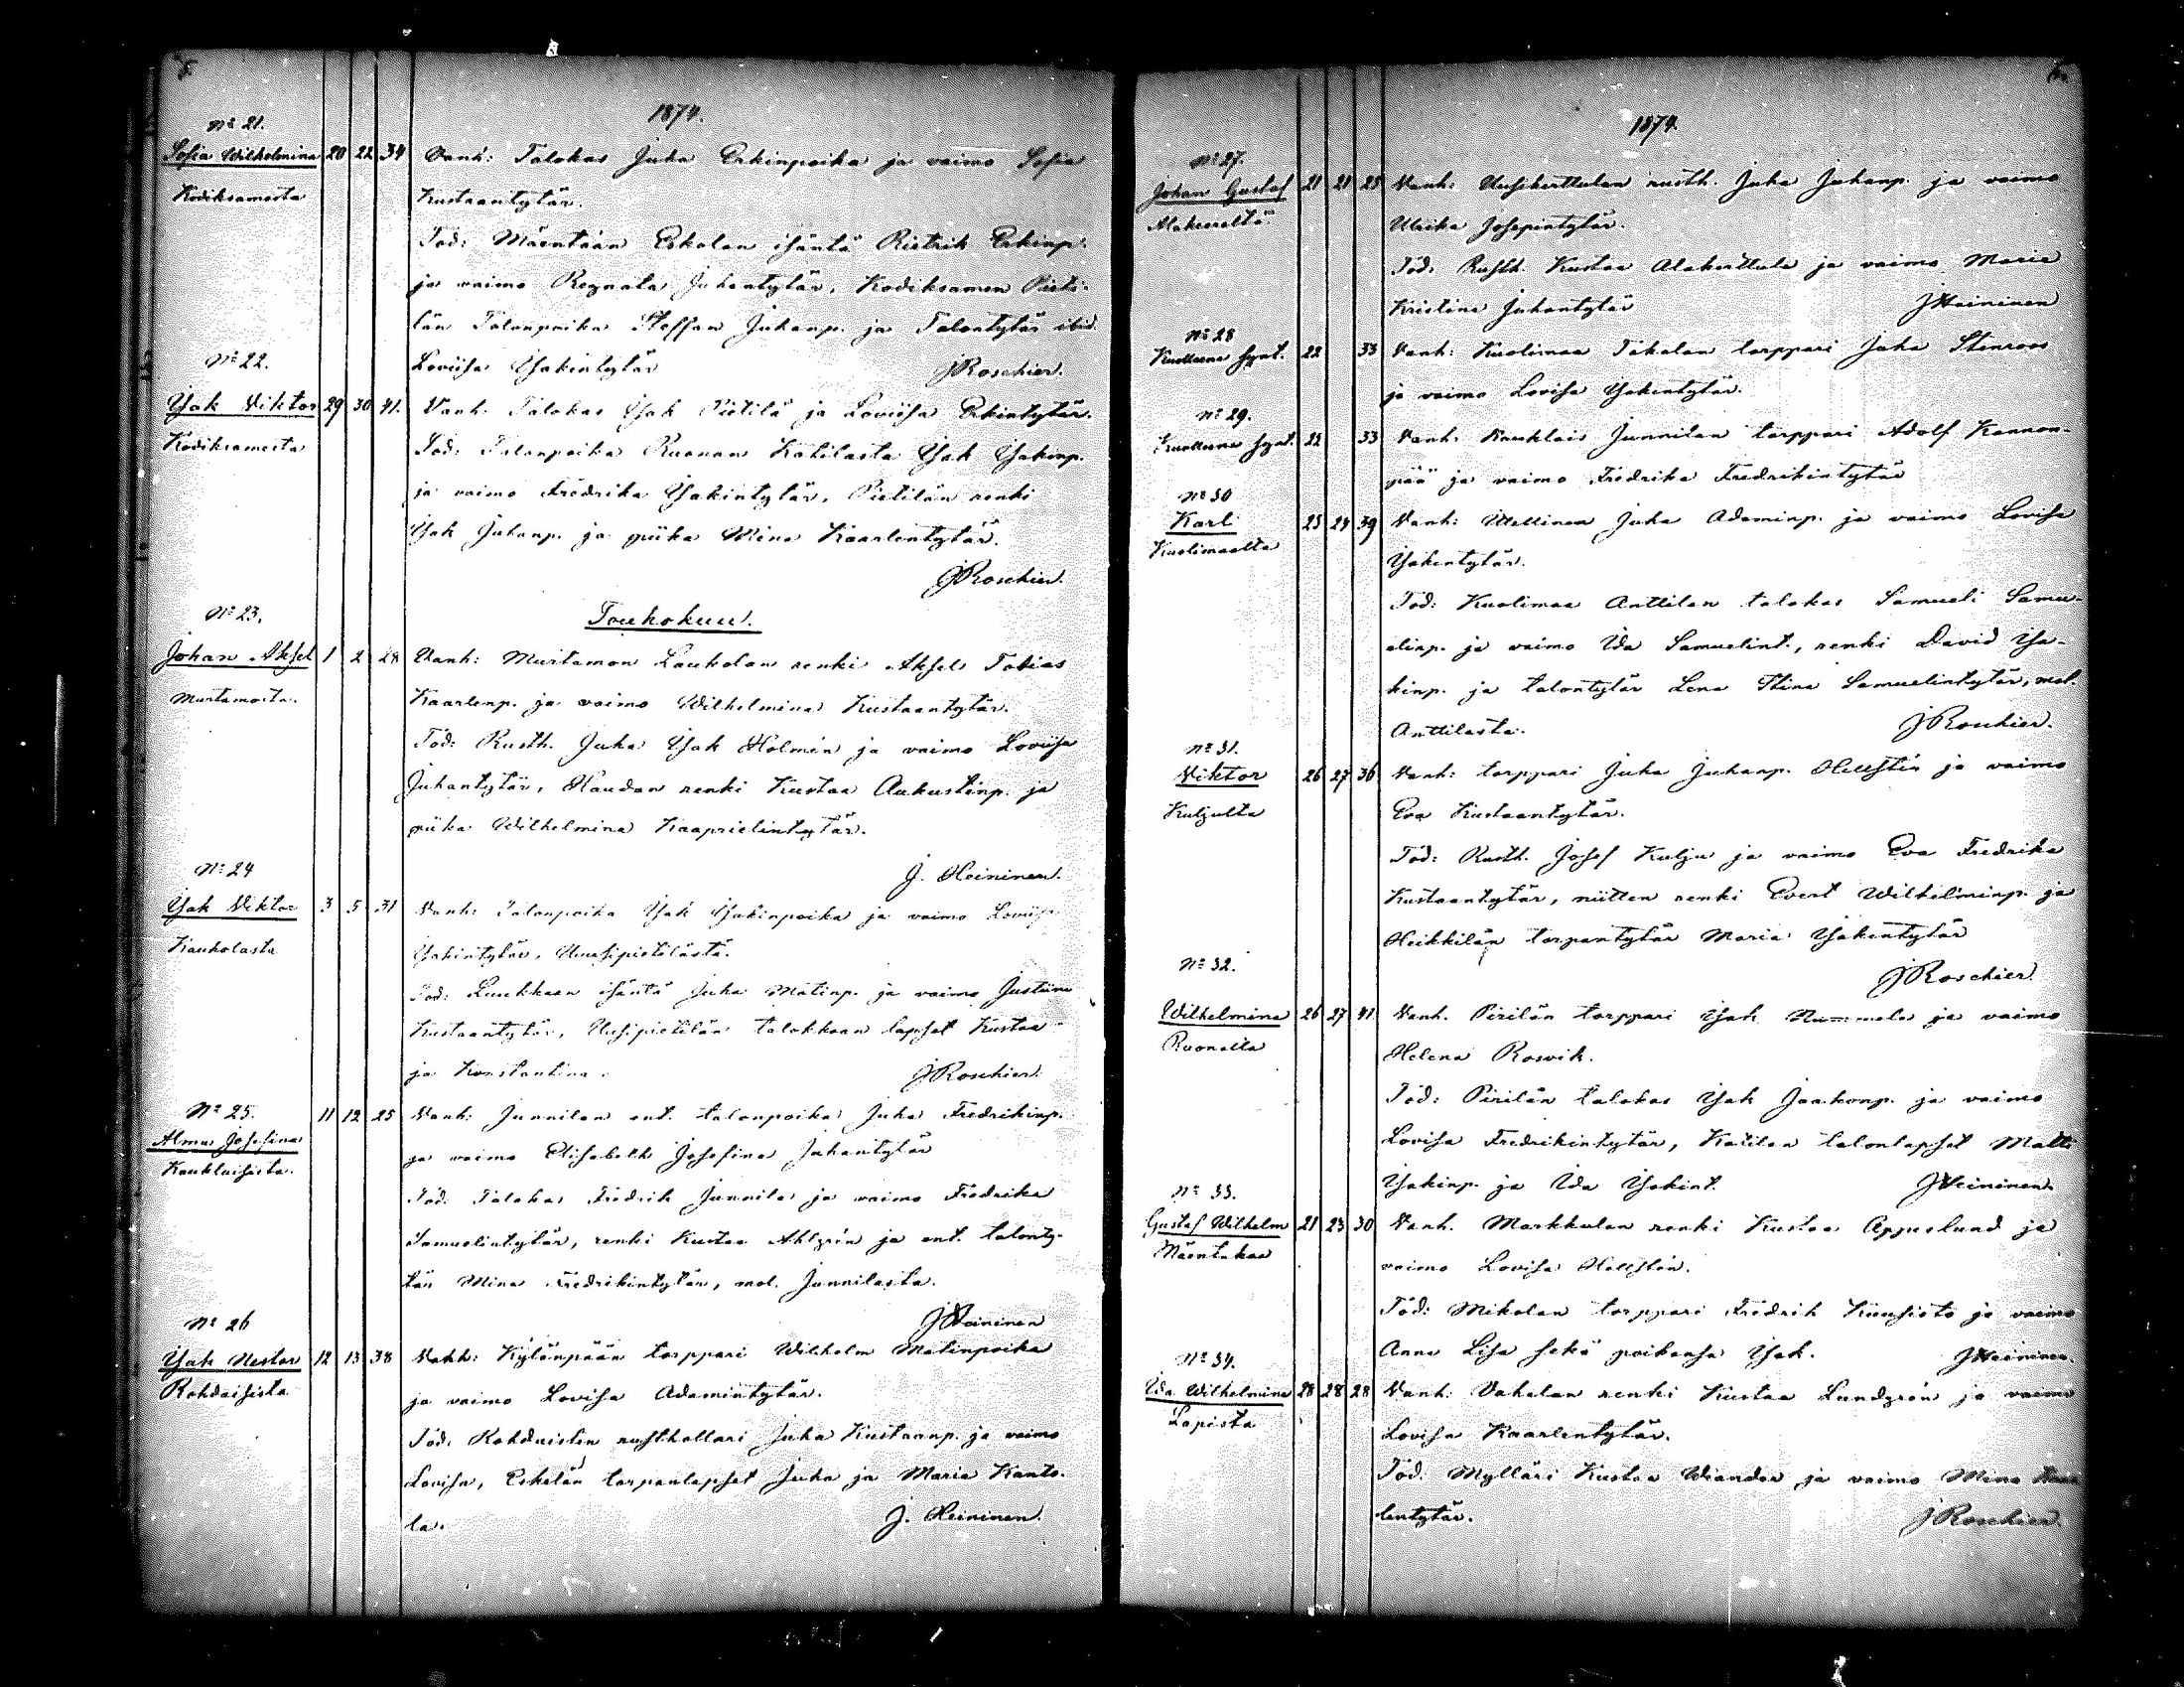 1874.
Nº 21.
Sofia Wilhelmina 20 22 34 Vanh: Talokas Juha Erkinpoika ja vaimo Sofia
Kodiksamosta Kustaantytär.
Tod: Mäentaan Eskolan isäntä Rietrik Erkinp.
ja vaimo Regnata Juhantytär, Kodiksamon Pieti-
län Talonpoika Steffan Juhanp. ja Talontytär ibid.
Loviisa Isakintytär JRoschier.
Nº 22.
Isak Viktor 29 30 41. Vanh. Talokas Isak Pietilä ja Loviisa Erkintytär.
Kodiksamosta Tod: Talonpoika Ruonan Katilasta Isak Isakinp.
ja vaimo Fredrika Isakintytär, Pietilän renki
Isak Juhanp. ja piika Mina Kaarlentytär.
JRoschier.
Toukokuu.
Nº 23.
Johan Aksel 1 2 28 Vanh: Murtamon Laukolan renki Aksel Tobias
Murtamosta. Kaarlenp. ja vaimo Wilhelmina Kustaantytär.
Tod: Rusth. Juha Isak Holmén ja vaimo Loviisa
Juhantytär, Haudan renki Kustaa Aukustinp. ja
piika Wilhelmina Kaaprielintytär.
J. Heininen.
Nº 24
Isak Viktor 3 5 31 Vanh: Talonpoika Isak Isakinpoika ja vaimo Loviisa
Kaukolasta Isakintytär, Uusipietilästä.
Tod: Luukkaan isäntä Juha Matinp. ja vaimo Justiina
Kustaantytär, Uusipietilän talokkaan lapset Kustaa
ja Konstantina. JRoschier.
Nº 25. 11 12 25 Vanh: Junnilan ent. talonpoika Juha Fredrikinp.
Alma Josefina ja vaimo Elisabeth Josefina Juhantytär
Kauklaisista. Tod: Talokas Fredrik Junnila ja vaimo Fredrika
Samuelintytär, renki Kustaa Ahlgrén ja ent. talonty-
tär Mina Fredrikintytär, mol. Junnilasta.
JHeininen
Nº 26
Isak Nestor 12 13 38 Vanh: Kylänpään torppari Wilhelm Matinpoika
Rohdaisista ja vaimo Lovisa Adamintytär.
Tod: Rohdaisten rusthollari Juha Kustaanp. ja vaimo
Lovisa, Eskolan torpanlapset Juha ja Maria Kanto-
la. J. Heininen.
1874.
Nº 27.
Johan Gustaf 21 21 25 Vanh: Uusikerttulan rusth. Juha Juhanp. ja vaimo
Ulrika Josepintytär.
Tod: Rusth. Kustaa Alakerttula ja vaimo Maria
Kristina Juhantytär JHeininen
Nº 28
Kuolleena synt. 22 33 Vanh: Kuolimaa Tökalan torppari Juha Stenroos
ja vaimo Lovisa Isakintytär.
Nº 29.
Kuolleena synt. 22 33 Vanh. Kauklais Junnilan torppari Adolf Kannon-
pää ja vaimo Fredrika Fredrikintytär
Nº 30
Karli 23 24 39 Vanh: Itsellinen Juha Adaminp. ja vaimo Lovisa
Kuolimaalta Isakintytär.
Tod: Kuolimaa Anttilan talokas Samueli Samu-
elinp. ja vaimo Ida Samuelint., renki David Isa-
kinp. ja talontytär Lena Stina Samuelintytär, mol.
Anttilasta. JRoschier.
Nº 31.
Viktor 26 27 36 Vanh: torppari Juha Juhanp. Hellstén ja vaimo
Kuljulta Eva Kustaantytär.
Tod: Rusth. Josef Kulju ja vaimo Eva Fredrika
Kustaantytär, niitten renki Evert Wilhelminp. ja
Heikkilän torpantytär Maria Isakintytär
JRoschier.
Nº 32.
Wilhelmina 26 27 41. Vanh. Pirilän torppari Isak Nummela ja vaimo
Ruonalta Helena Rosvik.
Tod: Pirilän talokas Isak Jaakonp. ja vaimo
Lovisa Fredrikintytär, Katilan talonlapset Matti
Isakinp. ja Ida Isakint. JHeininen.
Nº 33.
Gustaf Wilhelm 21 23 30 Vanh. Markkulan renki Kustaa Appuslund ja
Mäentakaa vaimo Lovisa Hellstén.
Tod: Mikolan torppari Fredrik Kiusisto ja vaimo
Anna Lisa sekä poikansa Isak. JHeininen.
Nº 34.
Ida Wilhelmina 28 28 28 Vanh: Vahalan renki Kustaa Lundgrén ja vaimo
Lapista Lovisa Kaarlentytär.
Tod: Mylläri Kustaa Wiander ja vaimo Mina Kaar-
lentytär. JRoschier.